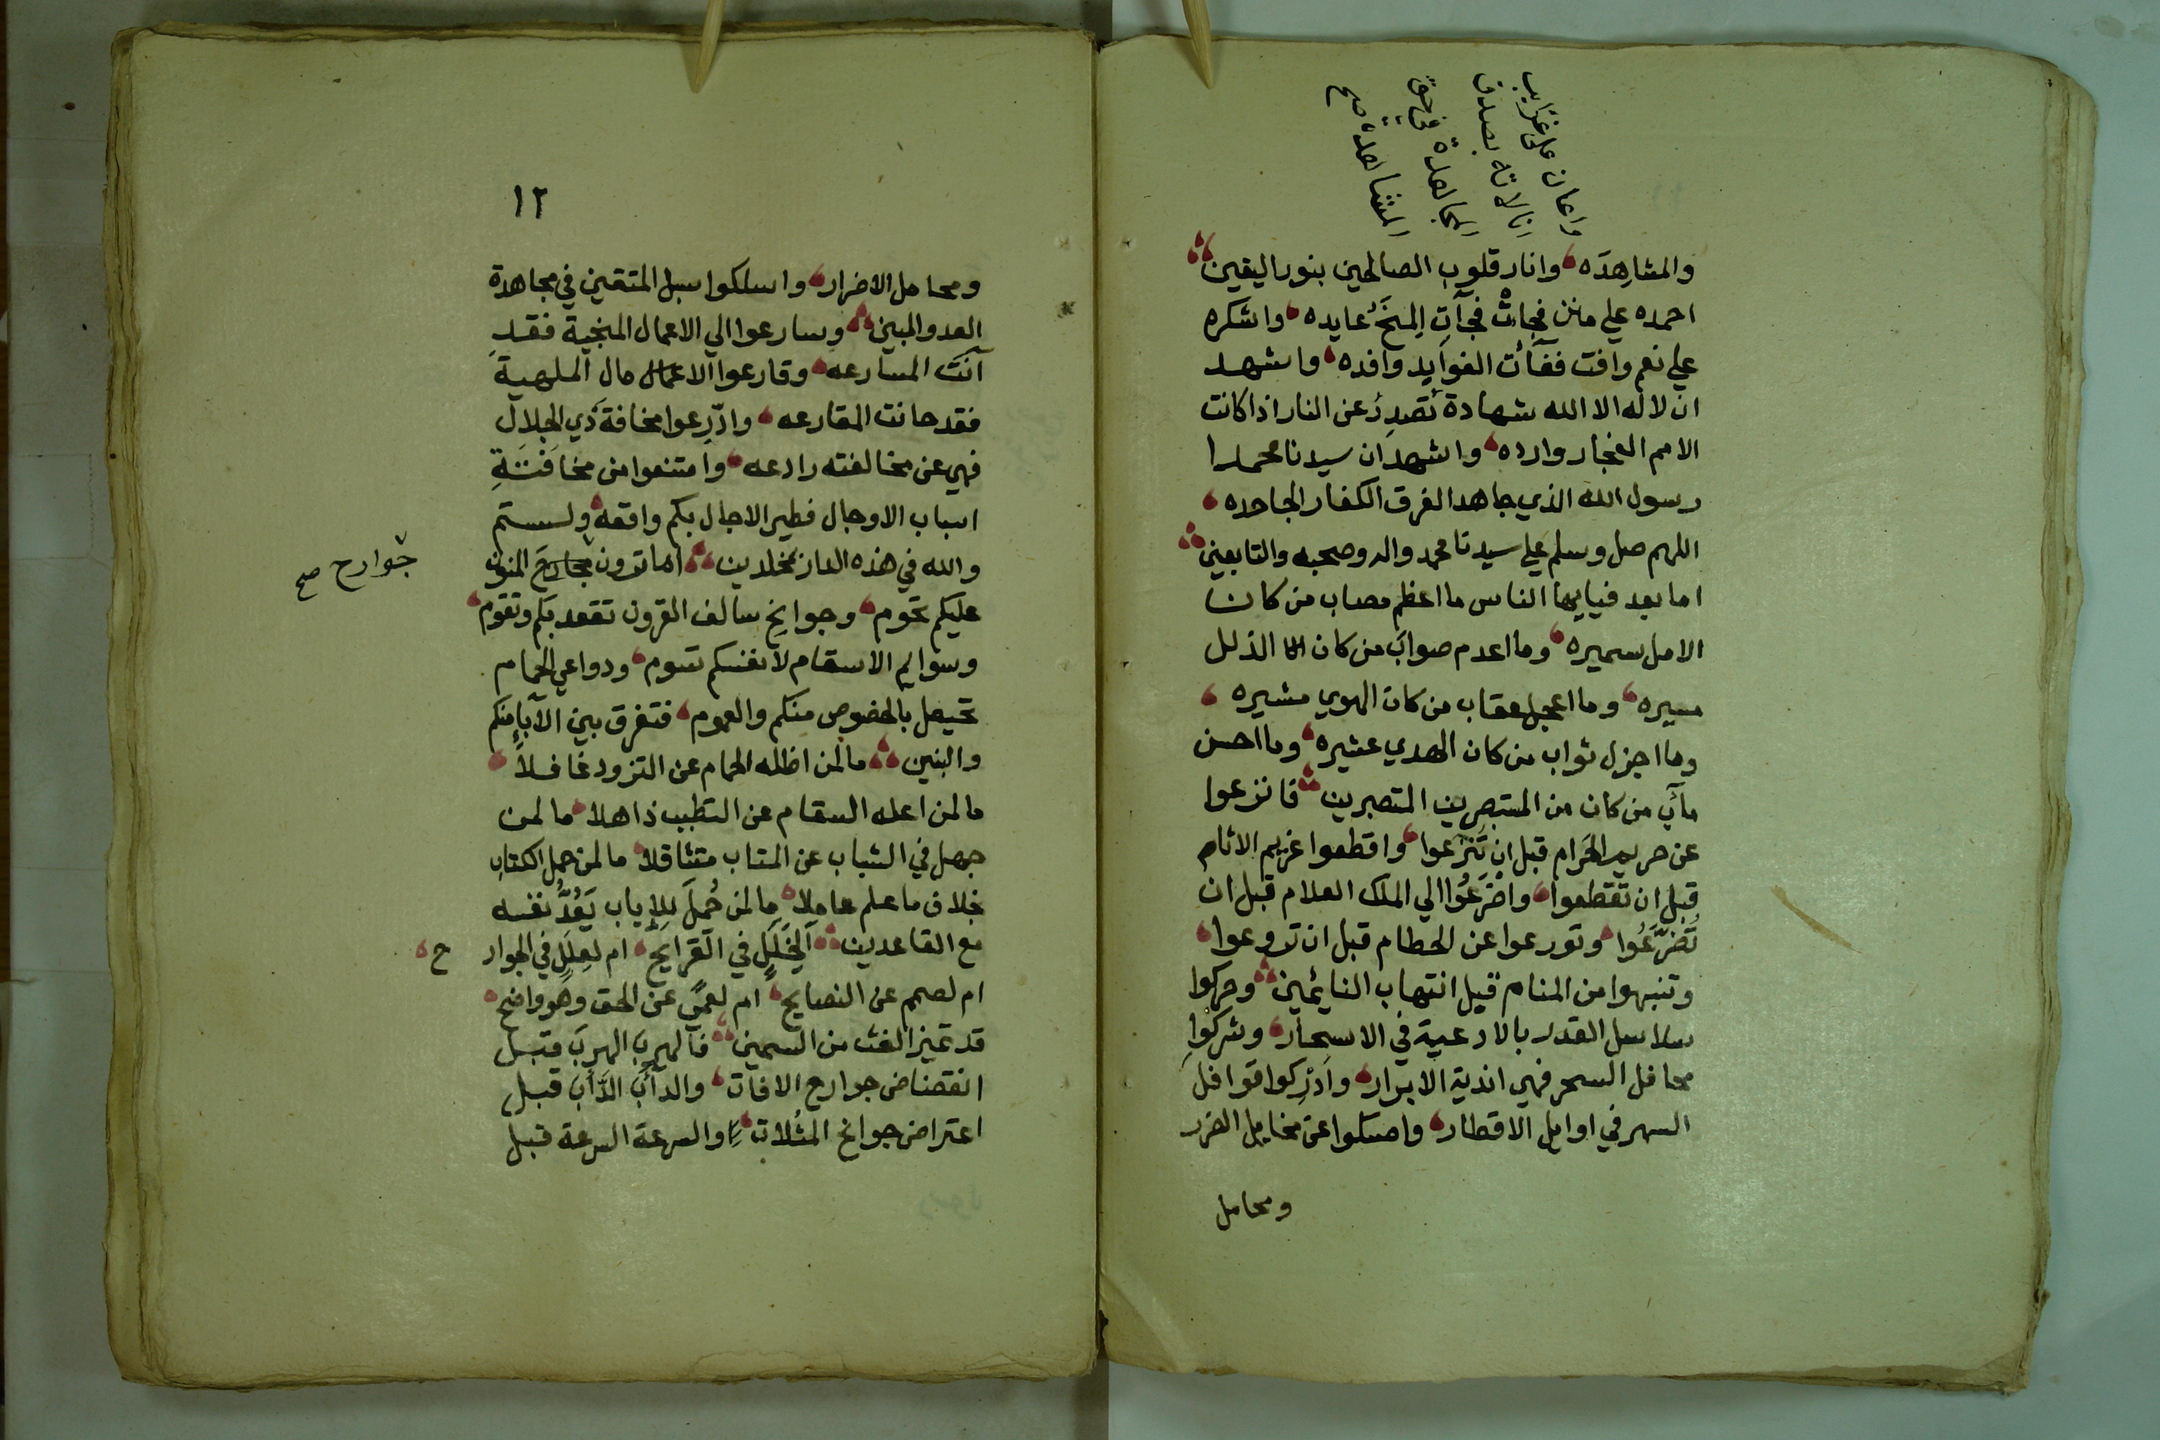 واعان على غرايب
انالاته بصدق
المجاهدة في حق
المشاهدة صح
والمشاهِدَه وانار قلوب الصالحين بنور اليقين
احمده علي منن فجاتْ فجآت المِنَح عايده واشكره
علي نعم وافت ففآت الفوايد وافده واشهد
ان لا اله الا الله شهادة تصدر عن النار اذا كانت
الامم الفجار وارده واشهد ان سيدنا محمدا
رسول الله الذي جاهد الفرق الكفار الجاحده
اللهم صل وسلم علي سيدنا محمد واله وصحبه والتابعين
اما بعد فيايها الناس ما اعظم مصاب من كان
الامل سميره وما اعدم صوابَ من كان الذلل
مسيره وما اعجل عقاب من كان الهوي مشيره
وما اجزل ثواب من كان الهدي عشيره وما احسن
مآب من كان من المستبصرين المتصبرين فانزعوا
عن حريم الحرام قبل ان تَنْزَعوا واقطعوا غريم الاثام
قبل ان تقطعوا واضرَعُوا الي الملك العلام قبل ان
تُضَرَّعُوا وتورعوا عن الحطام قبل ان تروعوا
وتنبهوا من المنام قبل انتهاب النايمين وحركوا
سلاسل القدر بالادعية في الاسحار وشركوا
محافل السحر فهي اندية الابرار وادركوا قوافل
السهر في اوايل الاقطار وامسكوا عن مخايل الضرر
ومحامل
١٢
ومحامل الاضرار واسلكوا سبل المتقين في مجاهدة
العدو المبين وسارعوا الي الاعمال المنجية فقد
آنت المسارعه وقارعوا الامال الملهية
فقد حانت المقارعه وادّرِعوا مخافة ذي الجلال
فهي عن مخالفته رادعه وامتنعوا من مخافتة
اسباب الاوجال فطير الاجال بكم واقعه ولستم
والله في هذه الدار بمخلدين اما ترون المنون
جوارح صح
عليكم تحوم وجوايح سالف القرون تقعد بكم وتقوم
وسوايم الاسقام لانفسكم تسوم ودواعي الحمام
تحيعل بالخصوص منكم والعموم فتفرق بين الآباء منكم
والبنين مالمن اظله الحمام عن التزود غافلاً
مالمن اعله السقام عن التطبب ذاهلا مالمن
جهل في الشباب عن المتاب متثاقلا مالمن حمل الكتاب
خلاف ما علم عاملا مالمن حُملَ للاياب يَعُدُّ نفسه
مع القاعدين الِخَلَلٍ في القرايح ام لعِلَلٍ في الجوار
ح
ام لصمم عن النصايح ام لعميً عن الحق وهو واضح
قد تميز الغث من السمين فالهربَ الهربَ قبل
انقضاض جوارح الافات والدأبَ الدأبَ قبل
اعتراض جوانح المثُلات والسرعة السرعة قبل